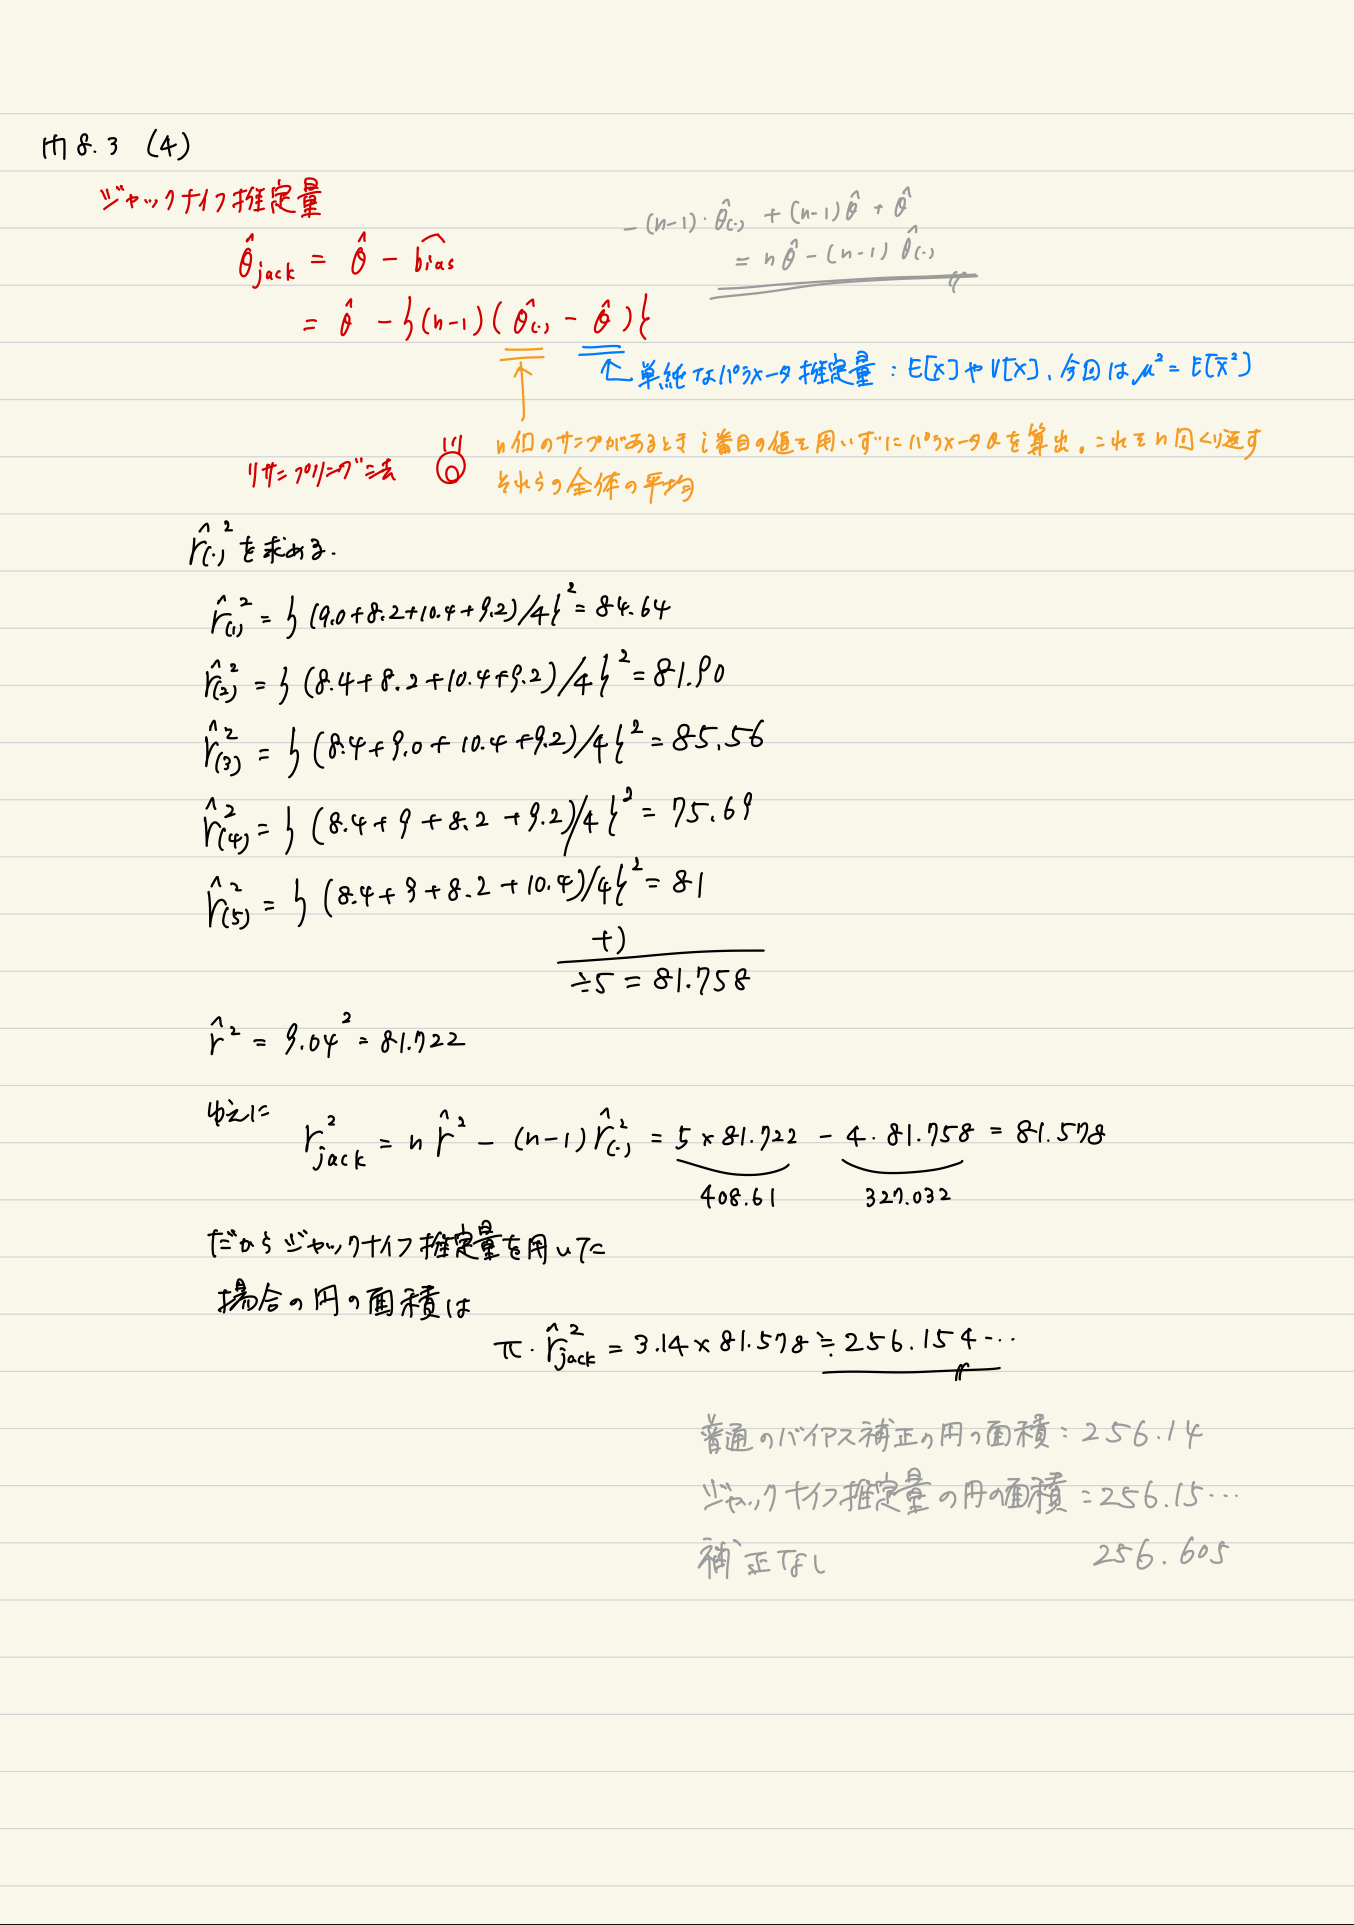 問8.3 (4)
ジャックナイフ推定量
θ̂jack = θ̂ - bias^
= θ̂ - {(n-1)(θ̂(·) - θ̂)}
-(n-1)·θ̂(·) + (n-1)θ̂ + θ̂
= nθ̂ - (n-1) θ̂(·)
単純なパラメータ推定量:E[X]やV[X]、今回はμ² = E[X̄²]
n個のサンプルがあるときi番目の値を用いずにパラメータθを算出。これをn回くり返す
それらの全体の平均
リサンプリング法
r̂(·)²を求める.
r̂(1)² = {(9.0+8.2+10.4+9.2)/4}² = 84.64
r̂(2)² = {(8.4+8.2+10.4+9.2)/4}² = 81.90
r̂(3)² = {(8.4+9.0+10.4+9.2)/4}² = 85.56
r̂(4)² = {(8.4+9+8.2+9.2)/4}² = 75.69
r̂(5)² = {(8.4+9+8.2+10.4)/4}² = 81
+)
÷5 = 81.758
r̂² = 9.04² = 81.722
ゆえに
r²jack = n r̂² - (n-1) r̂(·)² = 5×81.722 - 4·81.758 = 81.578
408.61 327.032
だからジャックナイフ推定量を用いた
場合の円の面積は
π·r̂²jack = 3.14×81.578 ≒ 256.154…
普通のバイアス補正の円の面積:256.14
ジャックナイフ推定量の円の面積:256.15…
補正なし 256.605